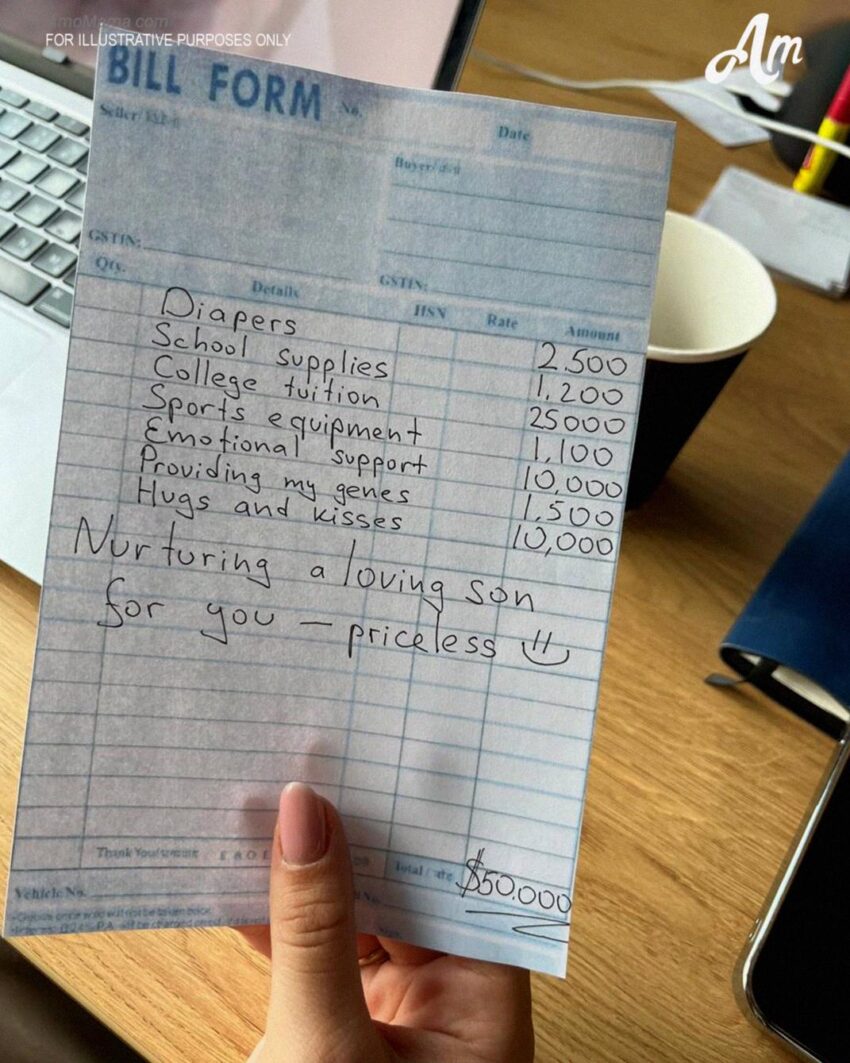 FOR ILLUSTRATIVE PURPOSES ONLY
Am
BILL FORM No.
Date
Seller/
Buyer/
GSTIN:
GSTIN:
Qty. Details HSN Rate Amount
Diapers 2.500
School supplies 1,200
College tuition 25000
Sports equipment 1,100
Emotional support 10,000
Providing my genes 1,500
Hugs and kisses 10,000
Nurturing a loving son
for you – priceless
Thank You E & O E Total / $50.000
Vehicle No.